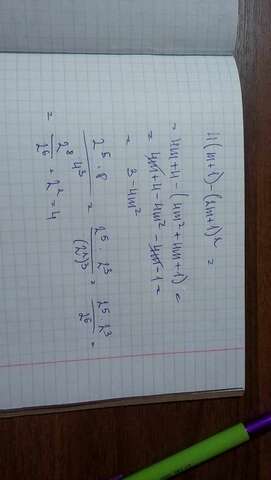 4(m+1)-(2m+1)² =
= 4m+4-(4m²+4m+1) =
= 4m+4-4m²-4m-1 =
= 3-4m²
2⁵·8 / 4³ = 2⁵·2³ / (2²)³ = 2⁵·2³ / 2⁶ =
= 2⁸ / 2⁶ = 2² = 4